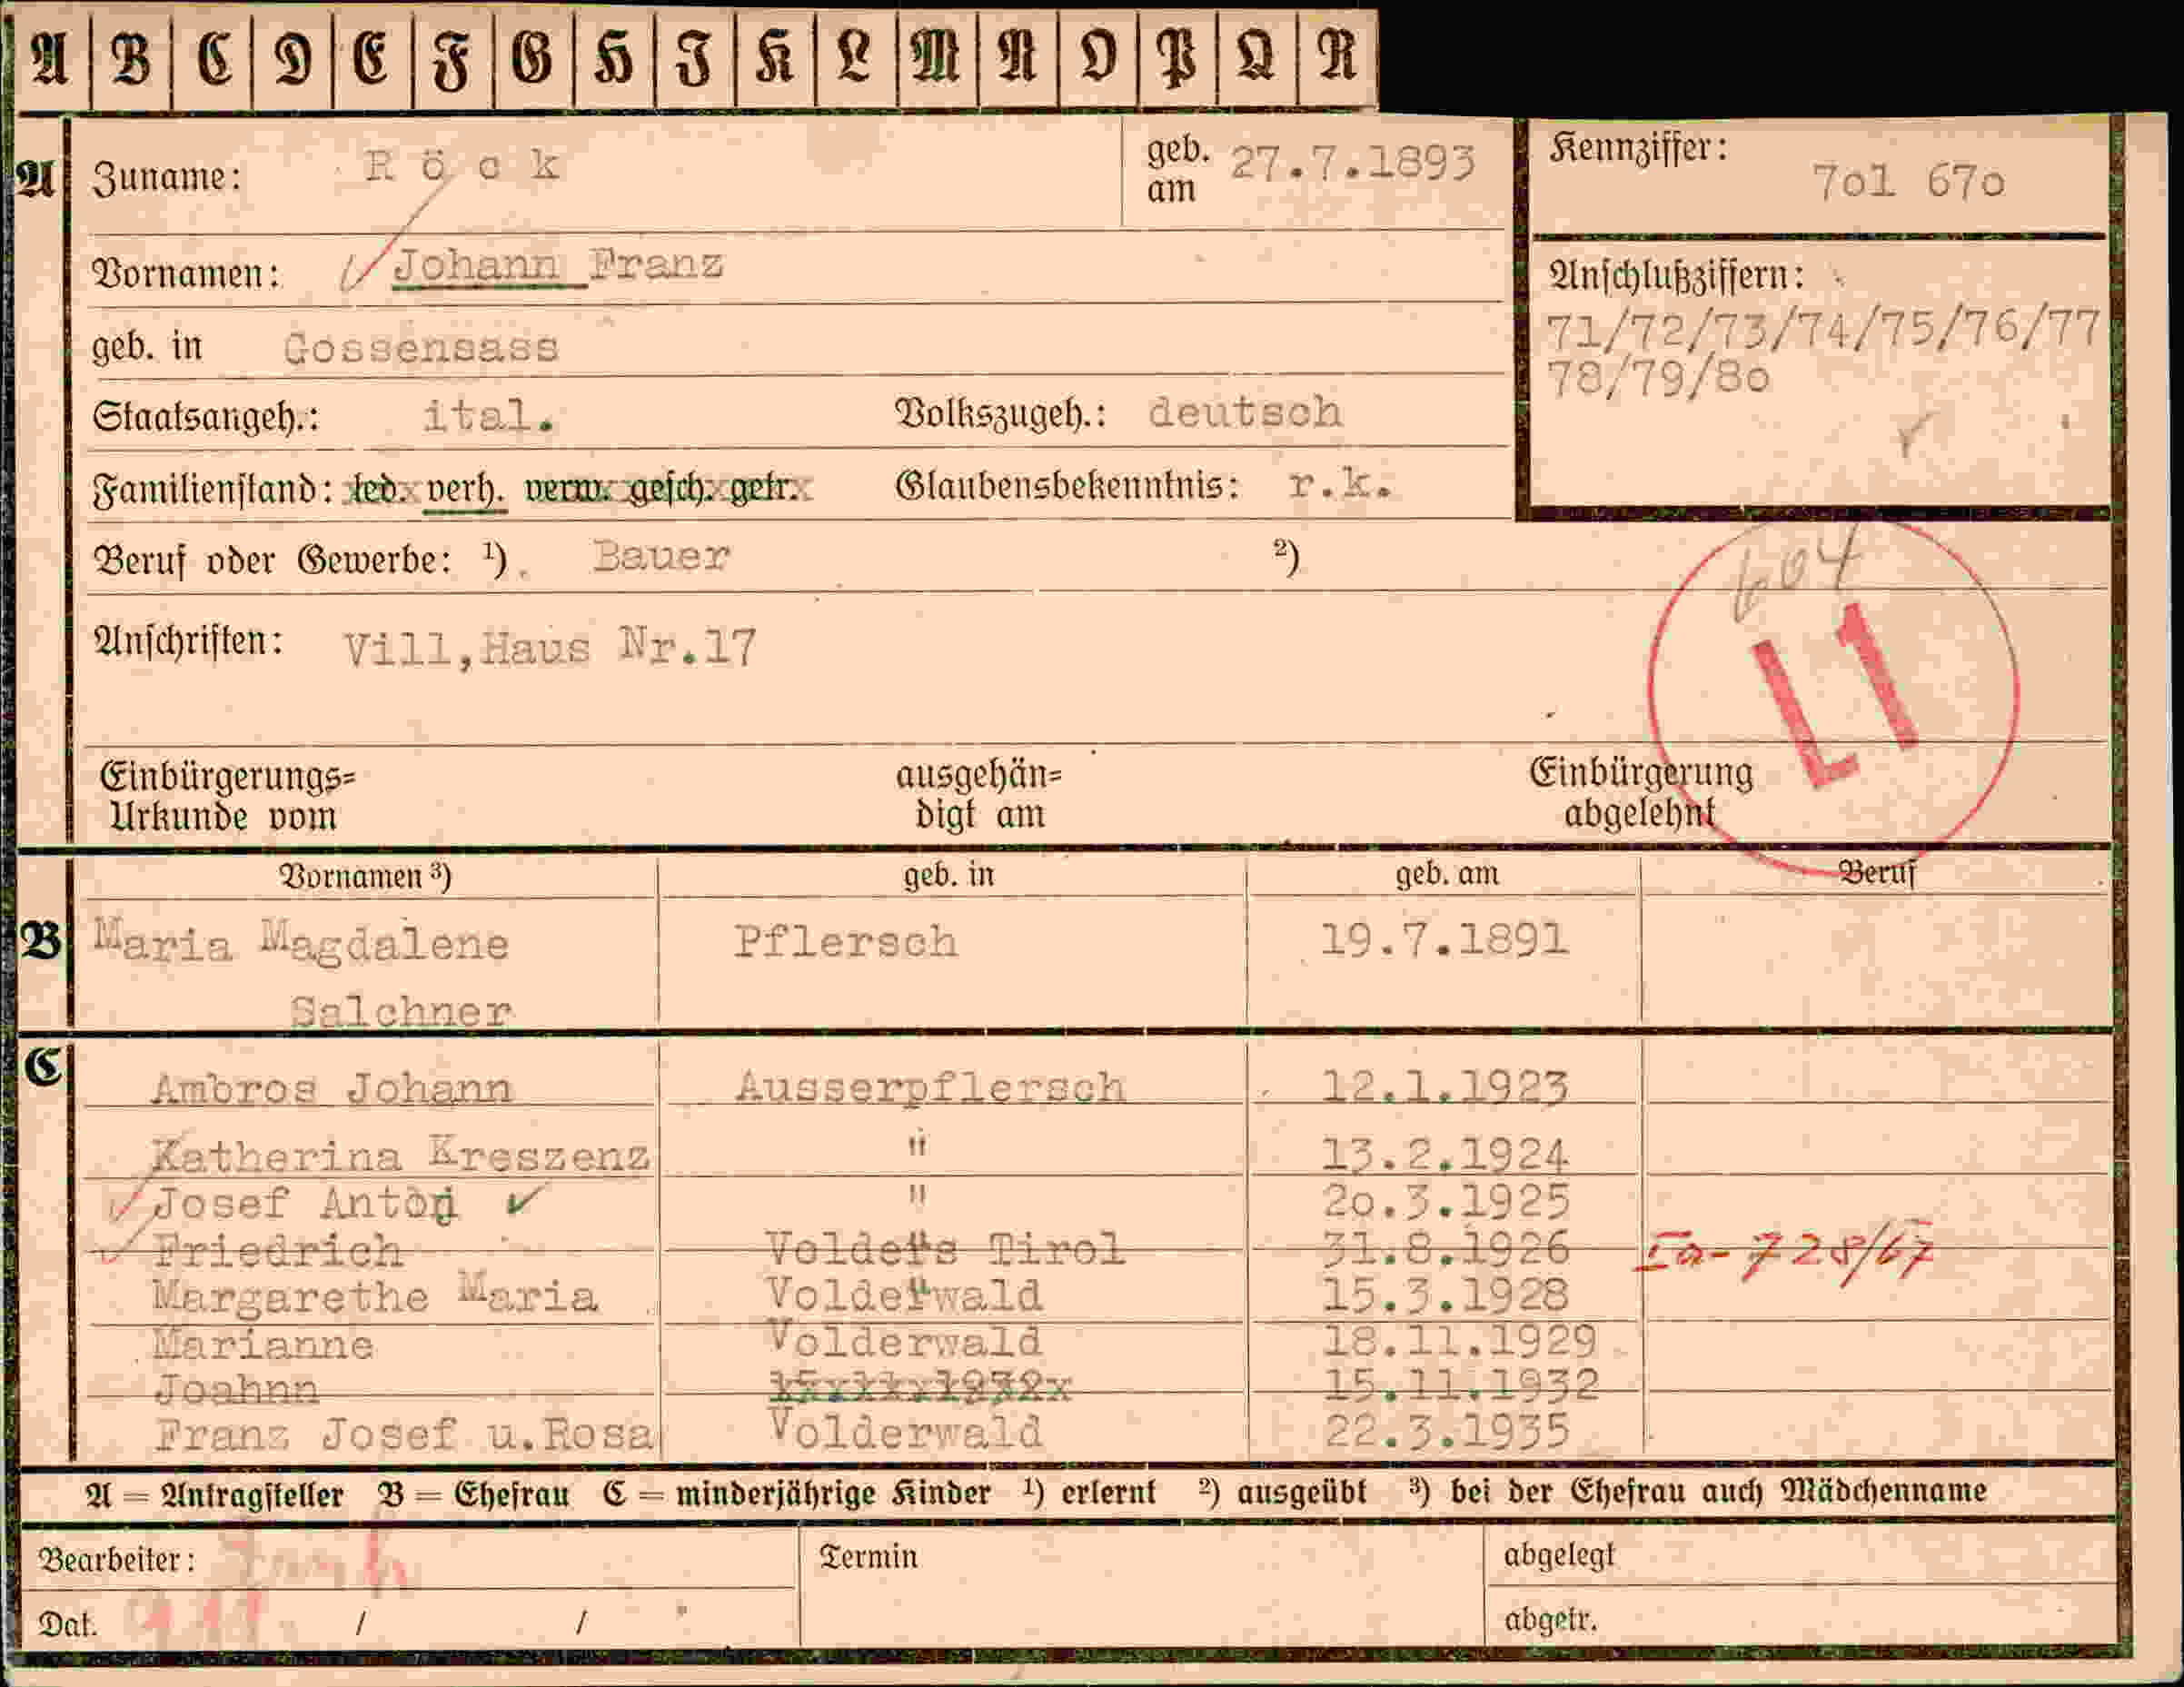 A B C D E F G H I K L M N O P Q R
A Zuname: Röck geb. am 27.7.1893 Kennziffer: 7o1 67o
Vornamen: Johann Franz Anschlußziffern:
71/72/73/74/75/76/77
geb. in Gossensass
78/79/8o
Staatsangeh.: ital. Volkszugeh.: deutsch
Familienstand: led. verh. verw. gesch. getr. Glaubensbekenntnis: r.k.
Beruf oder Gewerbe: ¹) Bauer ²)
604
Anschriften: Vill,Haus Nr.17
L1
Einbürgerungs= ausgehän= Einbürgerung
Urkunde vom digt am abgelehnt
Vornamen ³) geb. in geb. am Beruf
B Maria Magdalene Pflersch 19.7.1891
Salchner
C Ambros Johann Ausserpflersch 12.1.1923
Katherina Kreszenz " 13.2.1924
Josef Anton " 2o.3.1925
Friedrich Volders Tirol 31.8.1926 Ia-728/67
Margarethe Maria Volderwald 15.3.1928
Marianne Volderwald 18.11.1929
Joahnn 15.11.1932 15.11.1932
Franz Josef u.Rosa Volderwald 22.3.1935
A = Antragsteller B = Ehefrau C = minderjährige Kinder ¹) erlernt ²) ausgeübt ³) bei der Ehefrau auch Mädchenname
Bearbeiter: Termin abgelegt
Dat. / / abgetr.